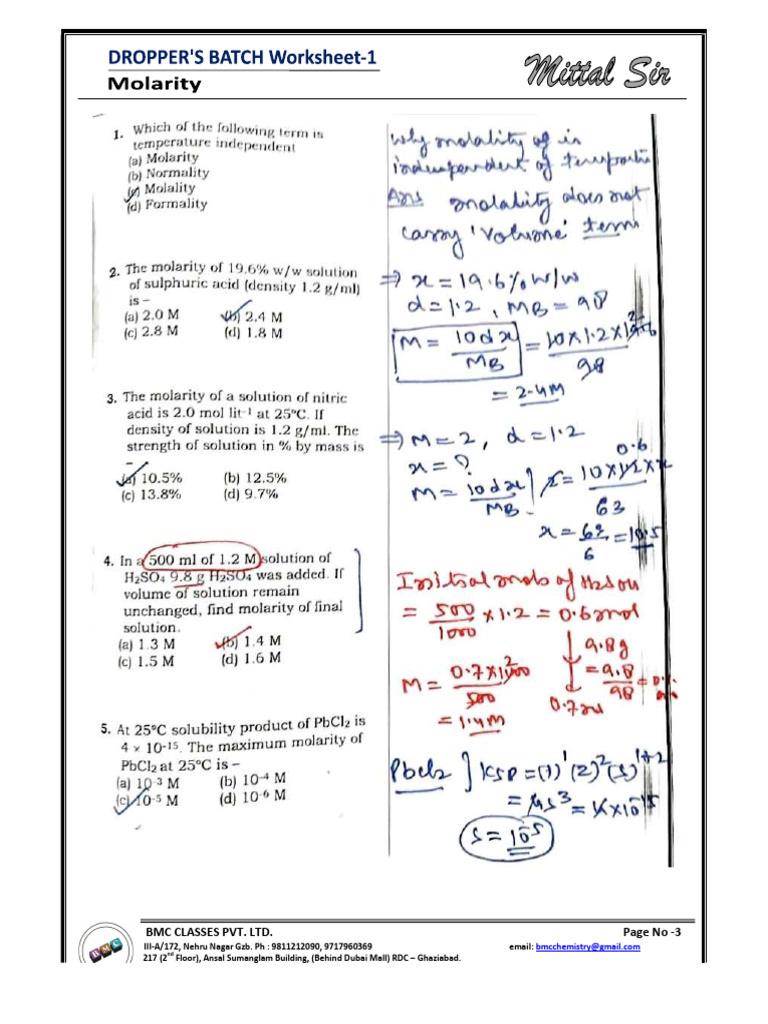 DROPPER'S BATCH Worksheet-1
Mittal Sir
Molarity
1. Which of the following term is
temperature independent
(a) Molarity
(b) Normality
(c) Molality
(d) Formality
why molality of is
independent of
Ans molality does not
carry 'volume' term
2. The molarity of 19.6% w/w solution
of sulphuric acid (density 1.2 g/ml)
is –
(a) 2.0 M (b) 2.4 M
(c) 2.8 M (d) 1.8 M
⇒ x = 19.6% w/w
d = 1.2, MB = 98
M = 10dx/MB = 10×1.2×19.6/98
= 2.4M
3. The molarity of a solution of nitric
acid is 2.0 mol lit⁻¹ at 25°C. If
density of solution is 1.2 g/ml. The
strength of solution in % by mass is
(a) 10.5% (b) 12.5%
(c) 13.8% (d) 9.7%
⇒ M = 2, d = 1.2
x = ?
M = 10dx/MB ] 2 = 10×1.2×x/63
x = 63/6 = 10.5
4. In a 500 ml of 1.2 M solution of
H₂SO₄ 9.8 g H₂SO₄ was added. If
volume of solution remain
unchanged, find molarity of final
solution.
(a) 1.3 M (b) 1.4 M
(c) 1.5 M (d) 1.6 M
Initial mols of H2SO4
= 500/1000 × 1.2 = 0.6 mol
9.8g
= 9.8/98
M = 0.7×1000/500
= 1.4M
5. At 25°C solubility product of PbCl₂ is
4 × 10⁻¹⁵. The maximum molarity of
PbCl₂ at 25°C is –
(a) 10⁻³ M (b) 10⁻⁴ M
(c) 10⁻⁵ M (d) 10⁻⁶ M
PbCl2 ] Ksp = (1)¹(2)²(s)¹⁺²
= 4s³ = 4×10⁻¹⁵
s = 10⁻⁵
BMC
BMC CLASSES PVT. LTD. Page No -3
III-A/172, Nehru Nagar Gzb. Ph : 9811212090, 9717960369 email: bmcchemistry@gmail.com
217 (2nd Floor), Ansal Sumanglam Building, (Behind Dubai Mall) RDC – Ghaziabad.